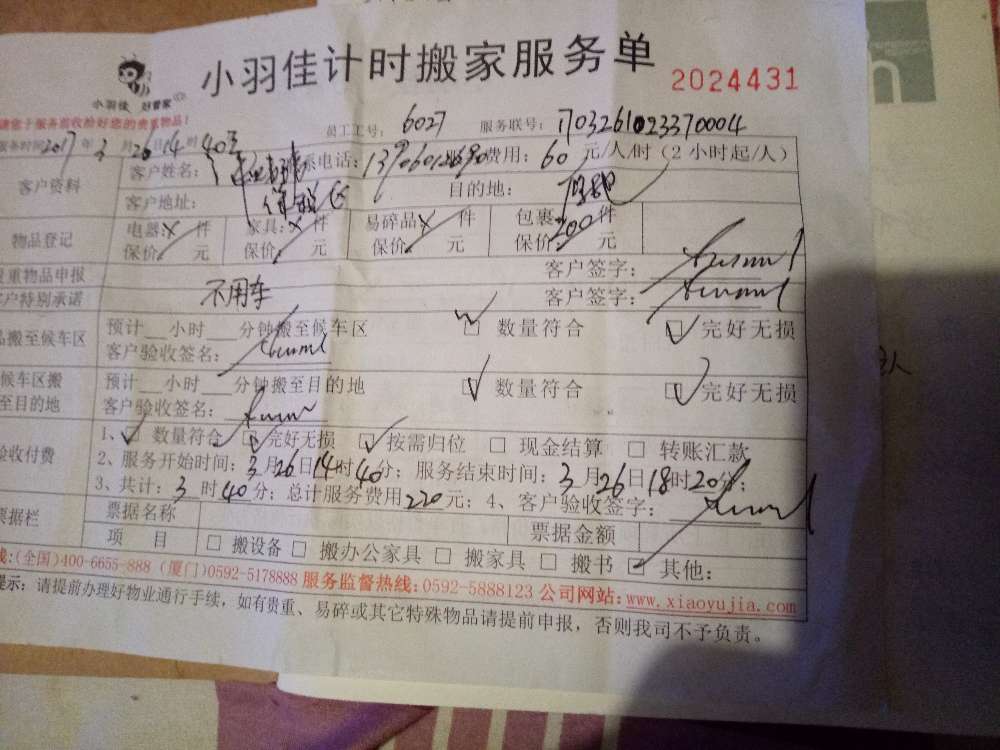 小羽佳计时搬家服务单
2024431
小羽佳 好管家
请您于服务前收拾好您的贵重物品!
员工工号: 6027 服务联号:
服务时间2017年3月26日14时40分
客户资料 客户姓名: 联系电话: 费用: 60元/人/时(2小时起/人)
客户地址: 目的地:
物品登记 电器: 件 家具: 件 易碎品 件 包裹: 200件
保价 元 保价 元 保价 元 保价 元
贵重物品申报 客户签字:
客户特别承诺 不用车 客户签字:
品搬至候车区 预计__小时__分钟搬至候车区 □ 数量符合 □ 完好无损
客户验收签名:
候车区搬至目的地 预计__小时__分钟搬至目的地 □ 数量符合 □ 完好无损
客户验收签名:
验收付费 1、□ 数量符合 □ 完好无损 □ 按需归位 □ 现金结算 □ 转账汇款
2、服务开始时间:3月26日14时40分;服务结束时间:3月26日18时20分;
3、共计:3时40分;总计服务费用220元;4、客户验收签字:
票据栏 票据名称 票据金额
项 目 □ 搬设备 □ 搬办公家具 □ 搬家具 □ 搬书 □ 其他:
线:(全国)400-6655-888 (厦门)0592-5178888 服务监督热线:0592-5888123 公司网站:www.xiaoyujia.com
提示:请提前办理好物业通行手续,如有贵重、易碎或其它特殊物品请提前申报,否则我司不予负责。